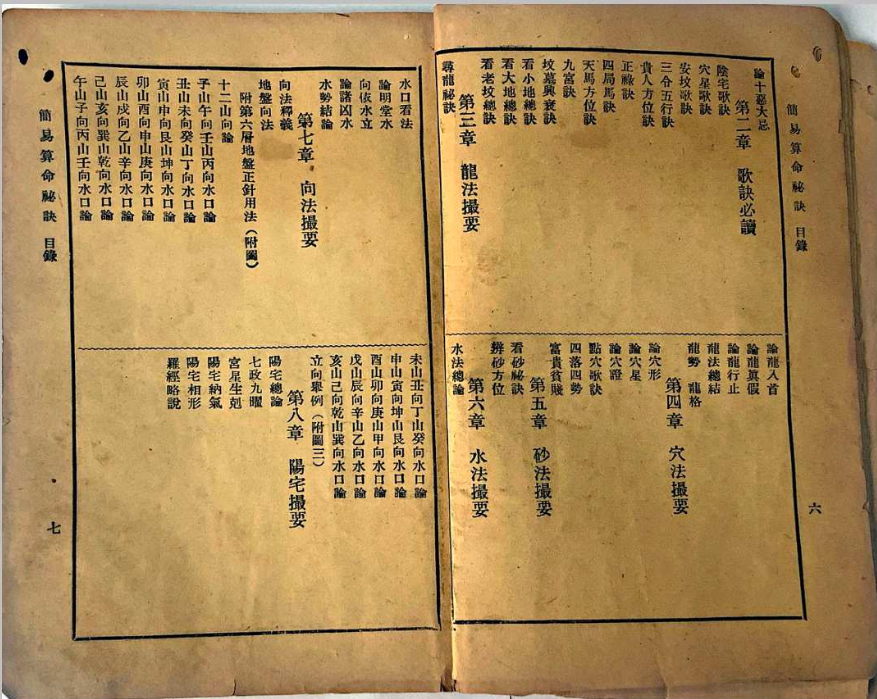 簡易算命祕訣 目錄
六
論十惡大忌
第二章 歌訣必讀
陰宅歌訣
穴星歌訣
安坟歌訣
三分五行訣
貴人方位訣
正祿訣
四局馬訣
天馬方位訣
九宮訣
坟墓興衰訣
看小地總訣
看大地總訣
看老坟總訣
第三章 龍法撮要
尋龍祕訣
論龍入首
論龍眞假
論龍行止
龍法總結
龍勢 龍格
第四章 穴法撮要
論穴形
論穴星
論穴證
點穴歌訣
四落四勢
富貴貧賤
第五章 砂法撮要
看砂祕訣
辨砂方位
第六章 水法撮要
水法總論
水口看法
論明堂水
向依水立
論諸凶水
水勢結論
第七章 向法撮要
向法釋義
地盤向法
附第六層地盤正針用法(附圖)
十二山向論
子山午向壬山丙向水口論
丑山未向癸山丁向水口論
寅山申向艮山坤向水口論
卯山酉向申山庚向水口論
辰山戌向乙山辛向水口論
己山亥向巽山乾向水口論
午山子向丙山壬向水口論
未山丑向丁山癸向水口論
申山寅向坤山艮向水口論
酉山卯向庚山甲向水口論
戌山辰向辛山乙向水口論
亥山己向乾山巽向水口論
立向舉例(附圖三)
第八章 陽宅撮要
陽宅總論
七政九曜
宮星生剋
陽宅納氣
陽宅相形
羅經略說
簡易算命祕訣 目錄
七